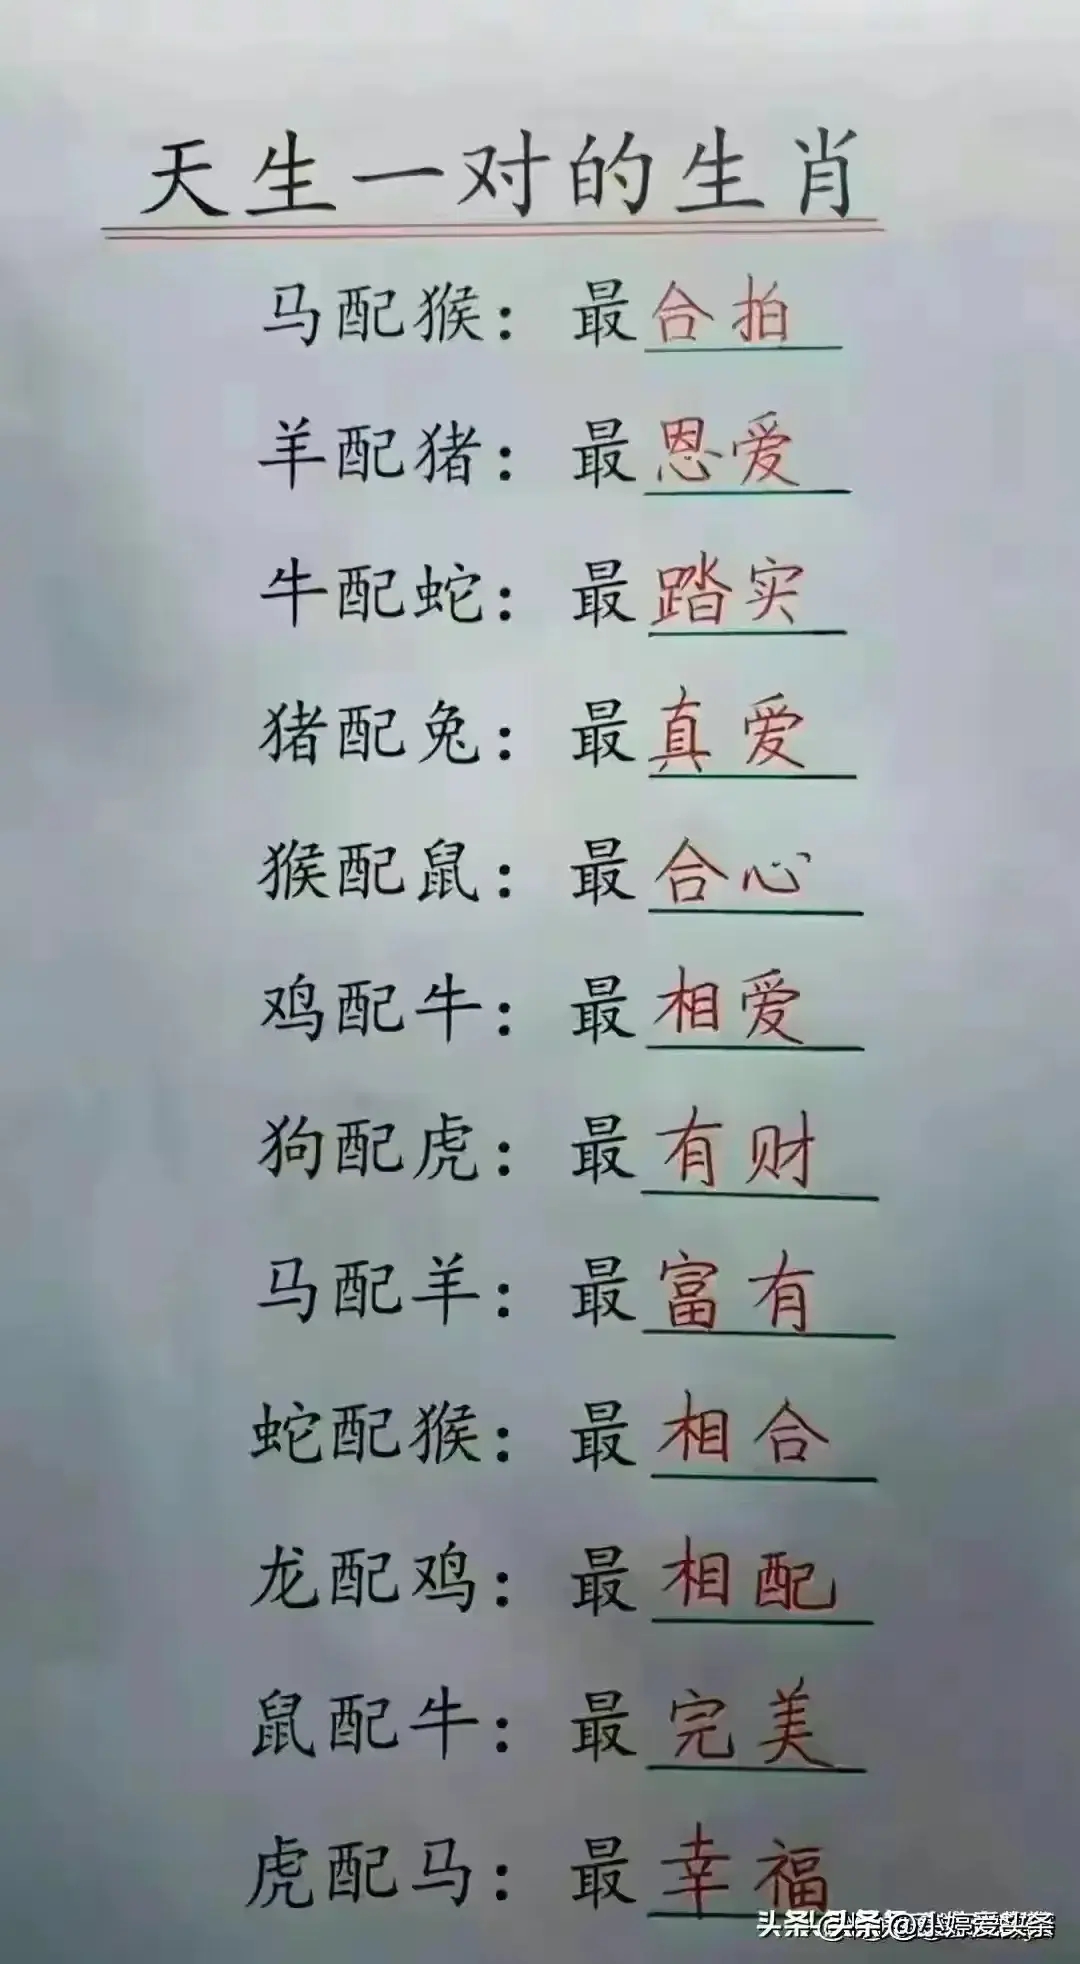 天生一对的生肖
马配猴：最合拍
羊配猪：最恩爱
牛配蛇：最踏实
猪配兔：最真爱
猴配鼠：最合心
鸡配牛：最相爱
狗配虎：最有财
马配羊：最富有
蛇配猴：最相合
龙配鸡：最相配
鼠配牛：最完美
虎配马：最幸福
头条 @小婷爱头条